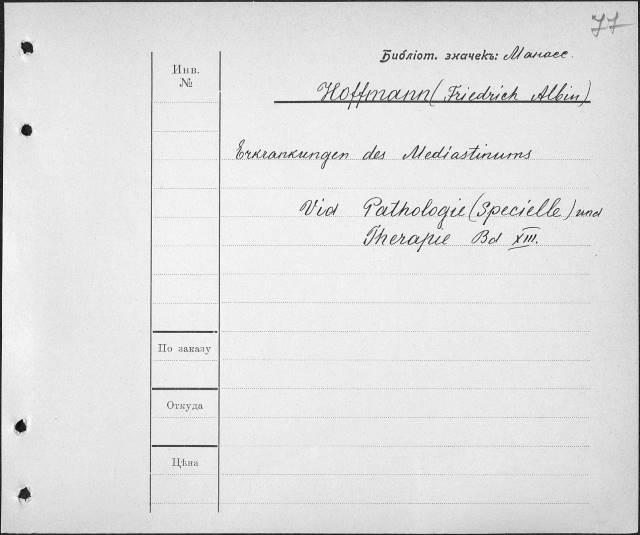 77
Библіот. значекъ: Манасс.
Инв.
№
Hoffmann (Friedrich Albin)
Erkrankungen des Mediastinums
Vid Pathologie (Specielle) und
Therapie Bd XIII.
По заказу
Откуда
Цѣна